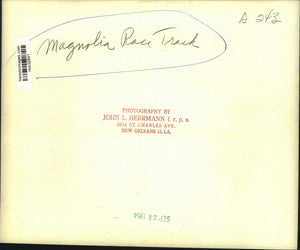 A 243
Magnolia Race Track
PHOTOGRAPHY BY
JOHN L. HERRMANN
ST. CHARLES AVE.
NEW ORLEANS 15, LA.
SEP 24 1954